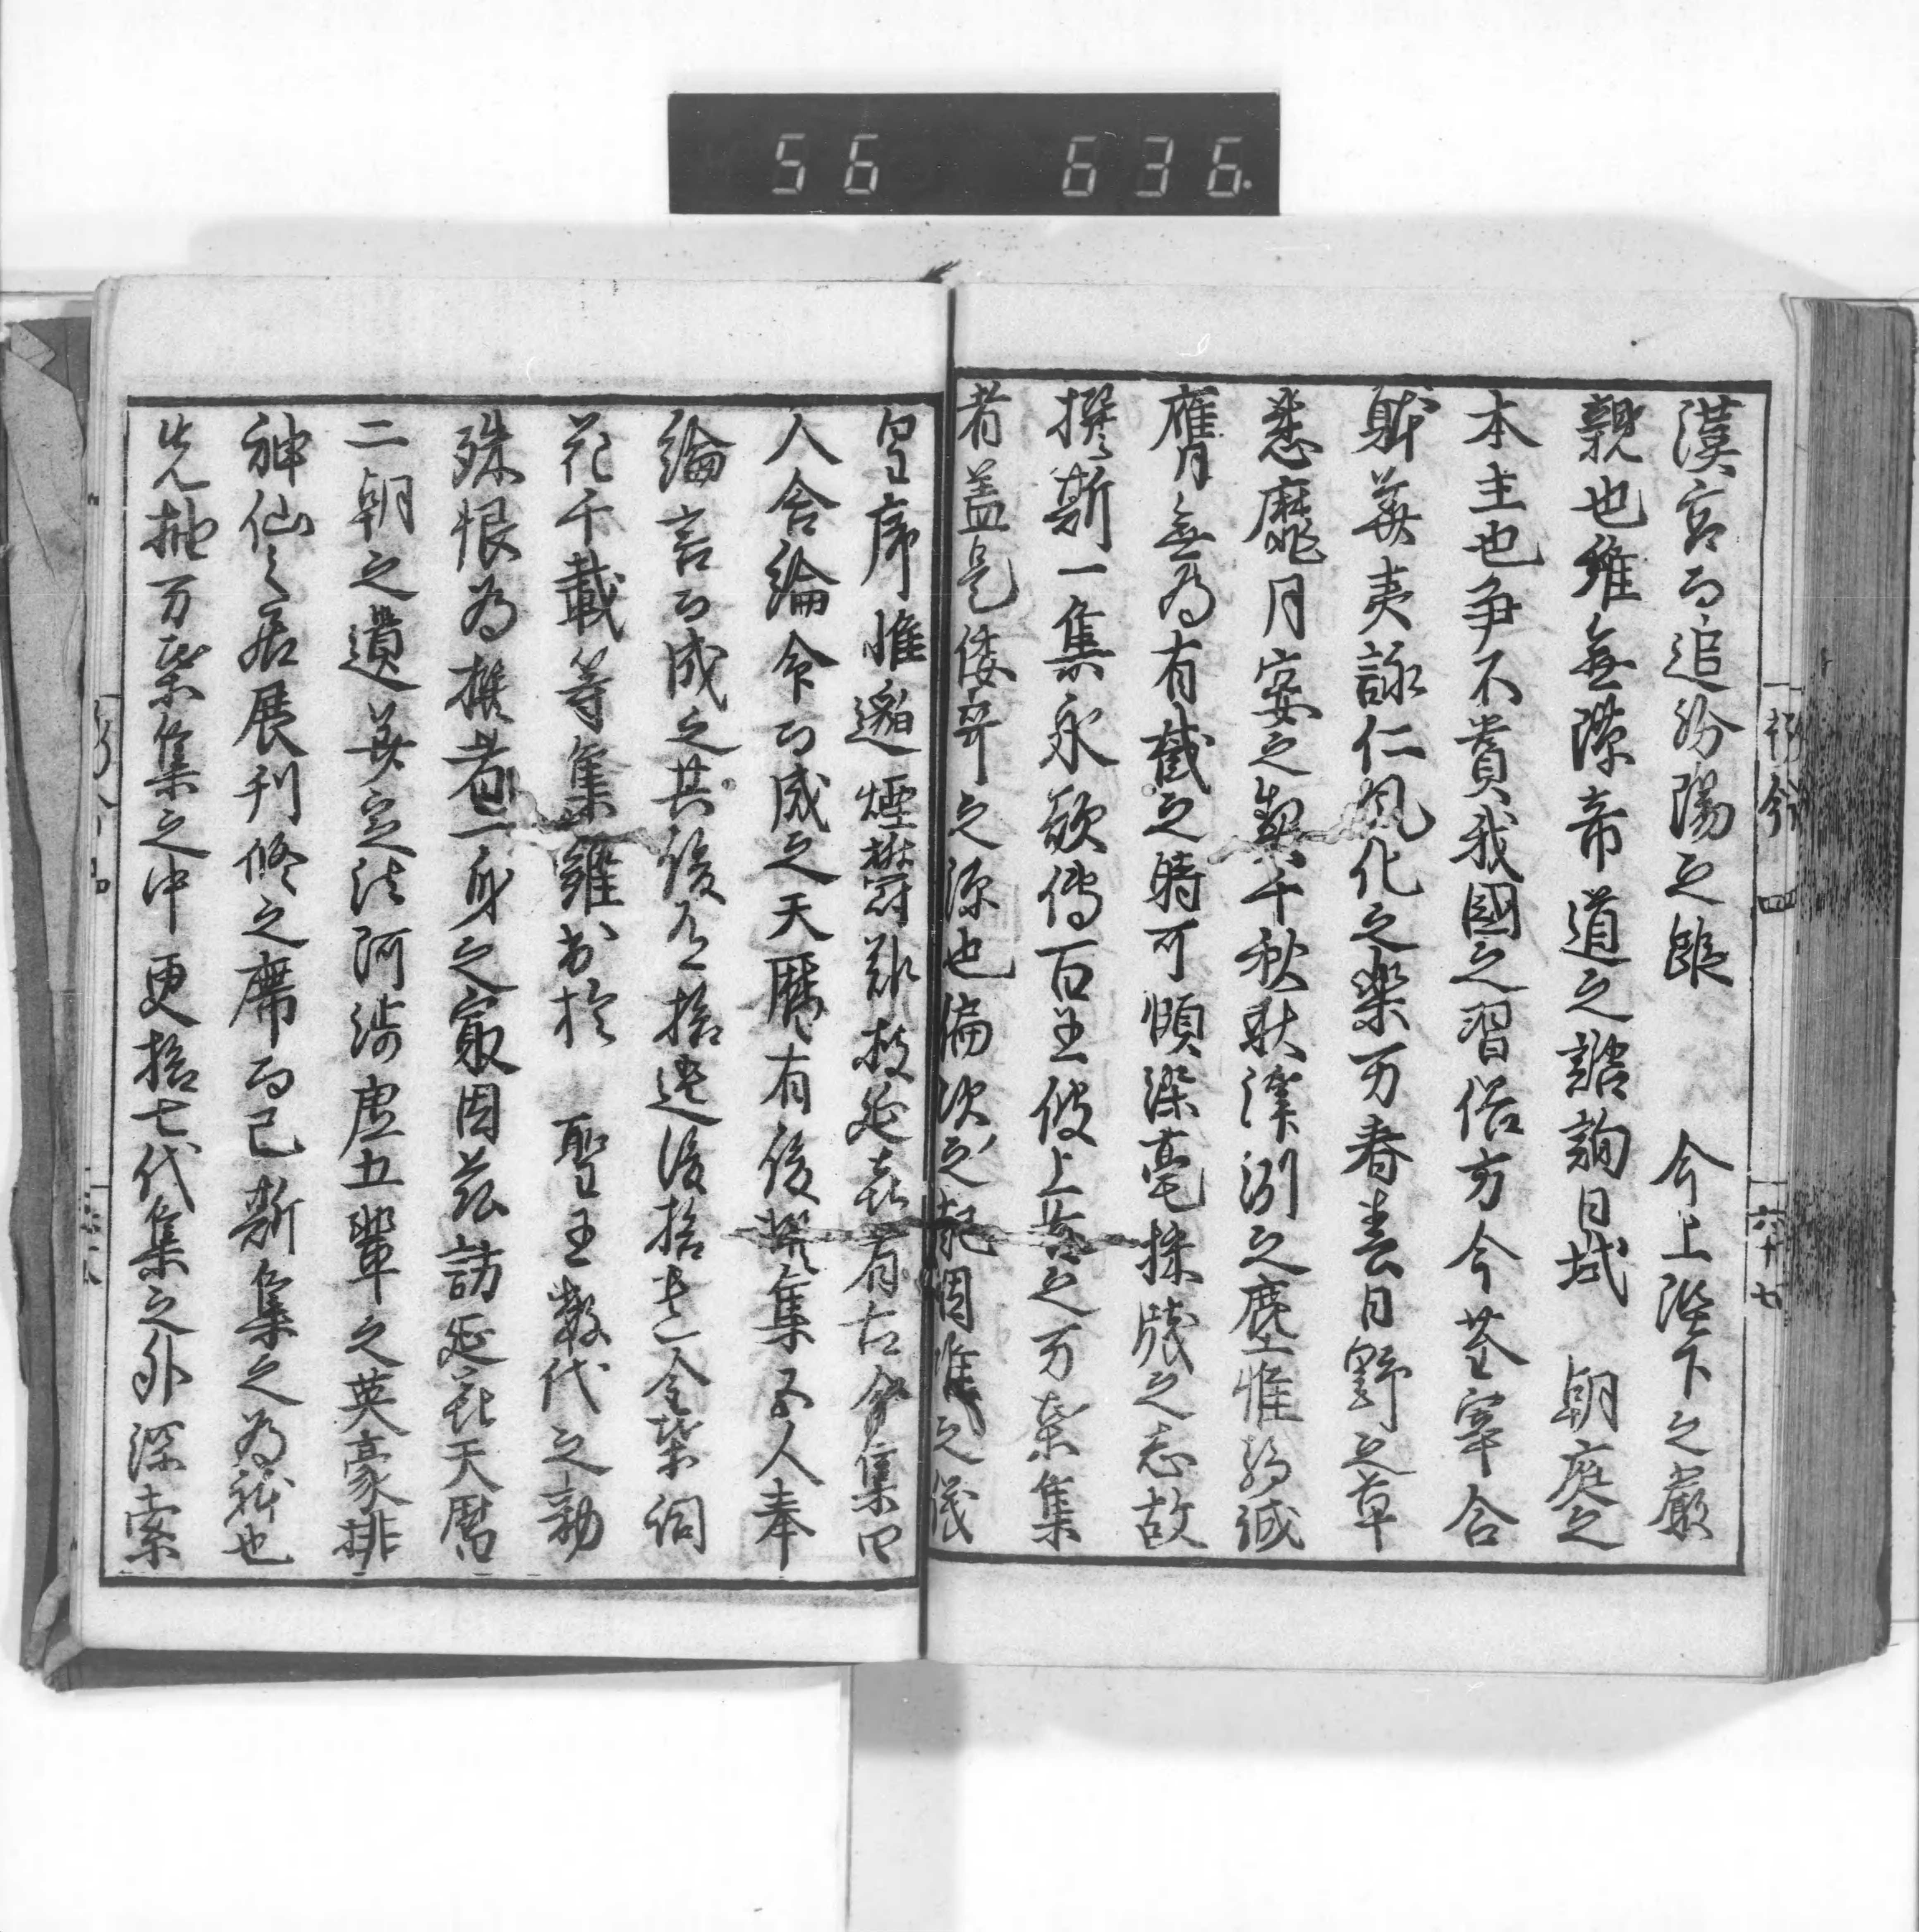 56 636
漢宮而追汾陽之蹤 今上陛下之嚴
親也雖無隙帝道之諮詢日域 朝庭之
本主也争不賞我國之習俗方今荃宰合
躰華夷詠仁風化之樂万春春日野之草
悉靡月宴之契千秋秋津洲之塵惟静誠
膺無為有截之時可頤染毫採牋之志故
撰斯一集永欲傳百王彼上古之万葉集
者蓋是倭哥之源也編次之起因准之儀
星序惟邈煙欝難披延喜有古今集四
人含綸命而成之天暦有後撰集五人奉
綸言而成之其後有拾遺後拾遺金葉詞
花千載等集雖出於 聖王数代之勅
殊恨為撰者一身之最因茲訪延喜天暦
二朝之遺美定法河渉虚五輩之英豪排
神仙之居展刊修之席而已斯集之為躰也
先抽万葉集之中更拾七代集之外深索
四
六十七